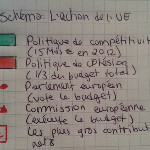 Schéma: L'action de l'UE
Politique de compétitivit
(15 Mds € en 2012)
Politique de cohésion
(1/3 du budget total)
Parlement européen
(vote le budget)
Commission européenne
(exécute le budget)
les plus gros contribut
nets